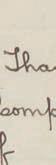 Tha
comp
f